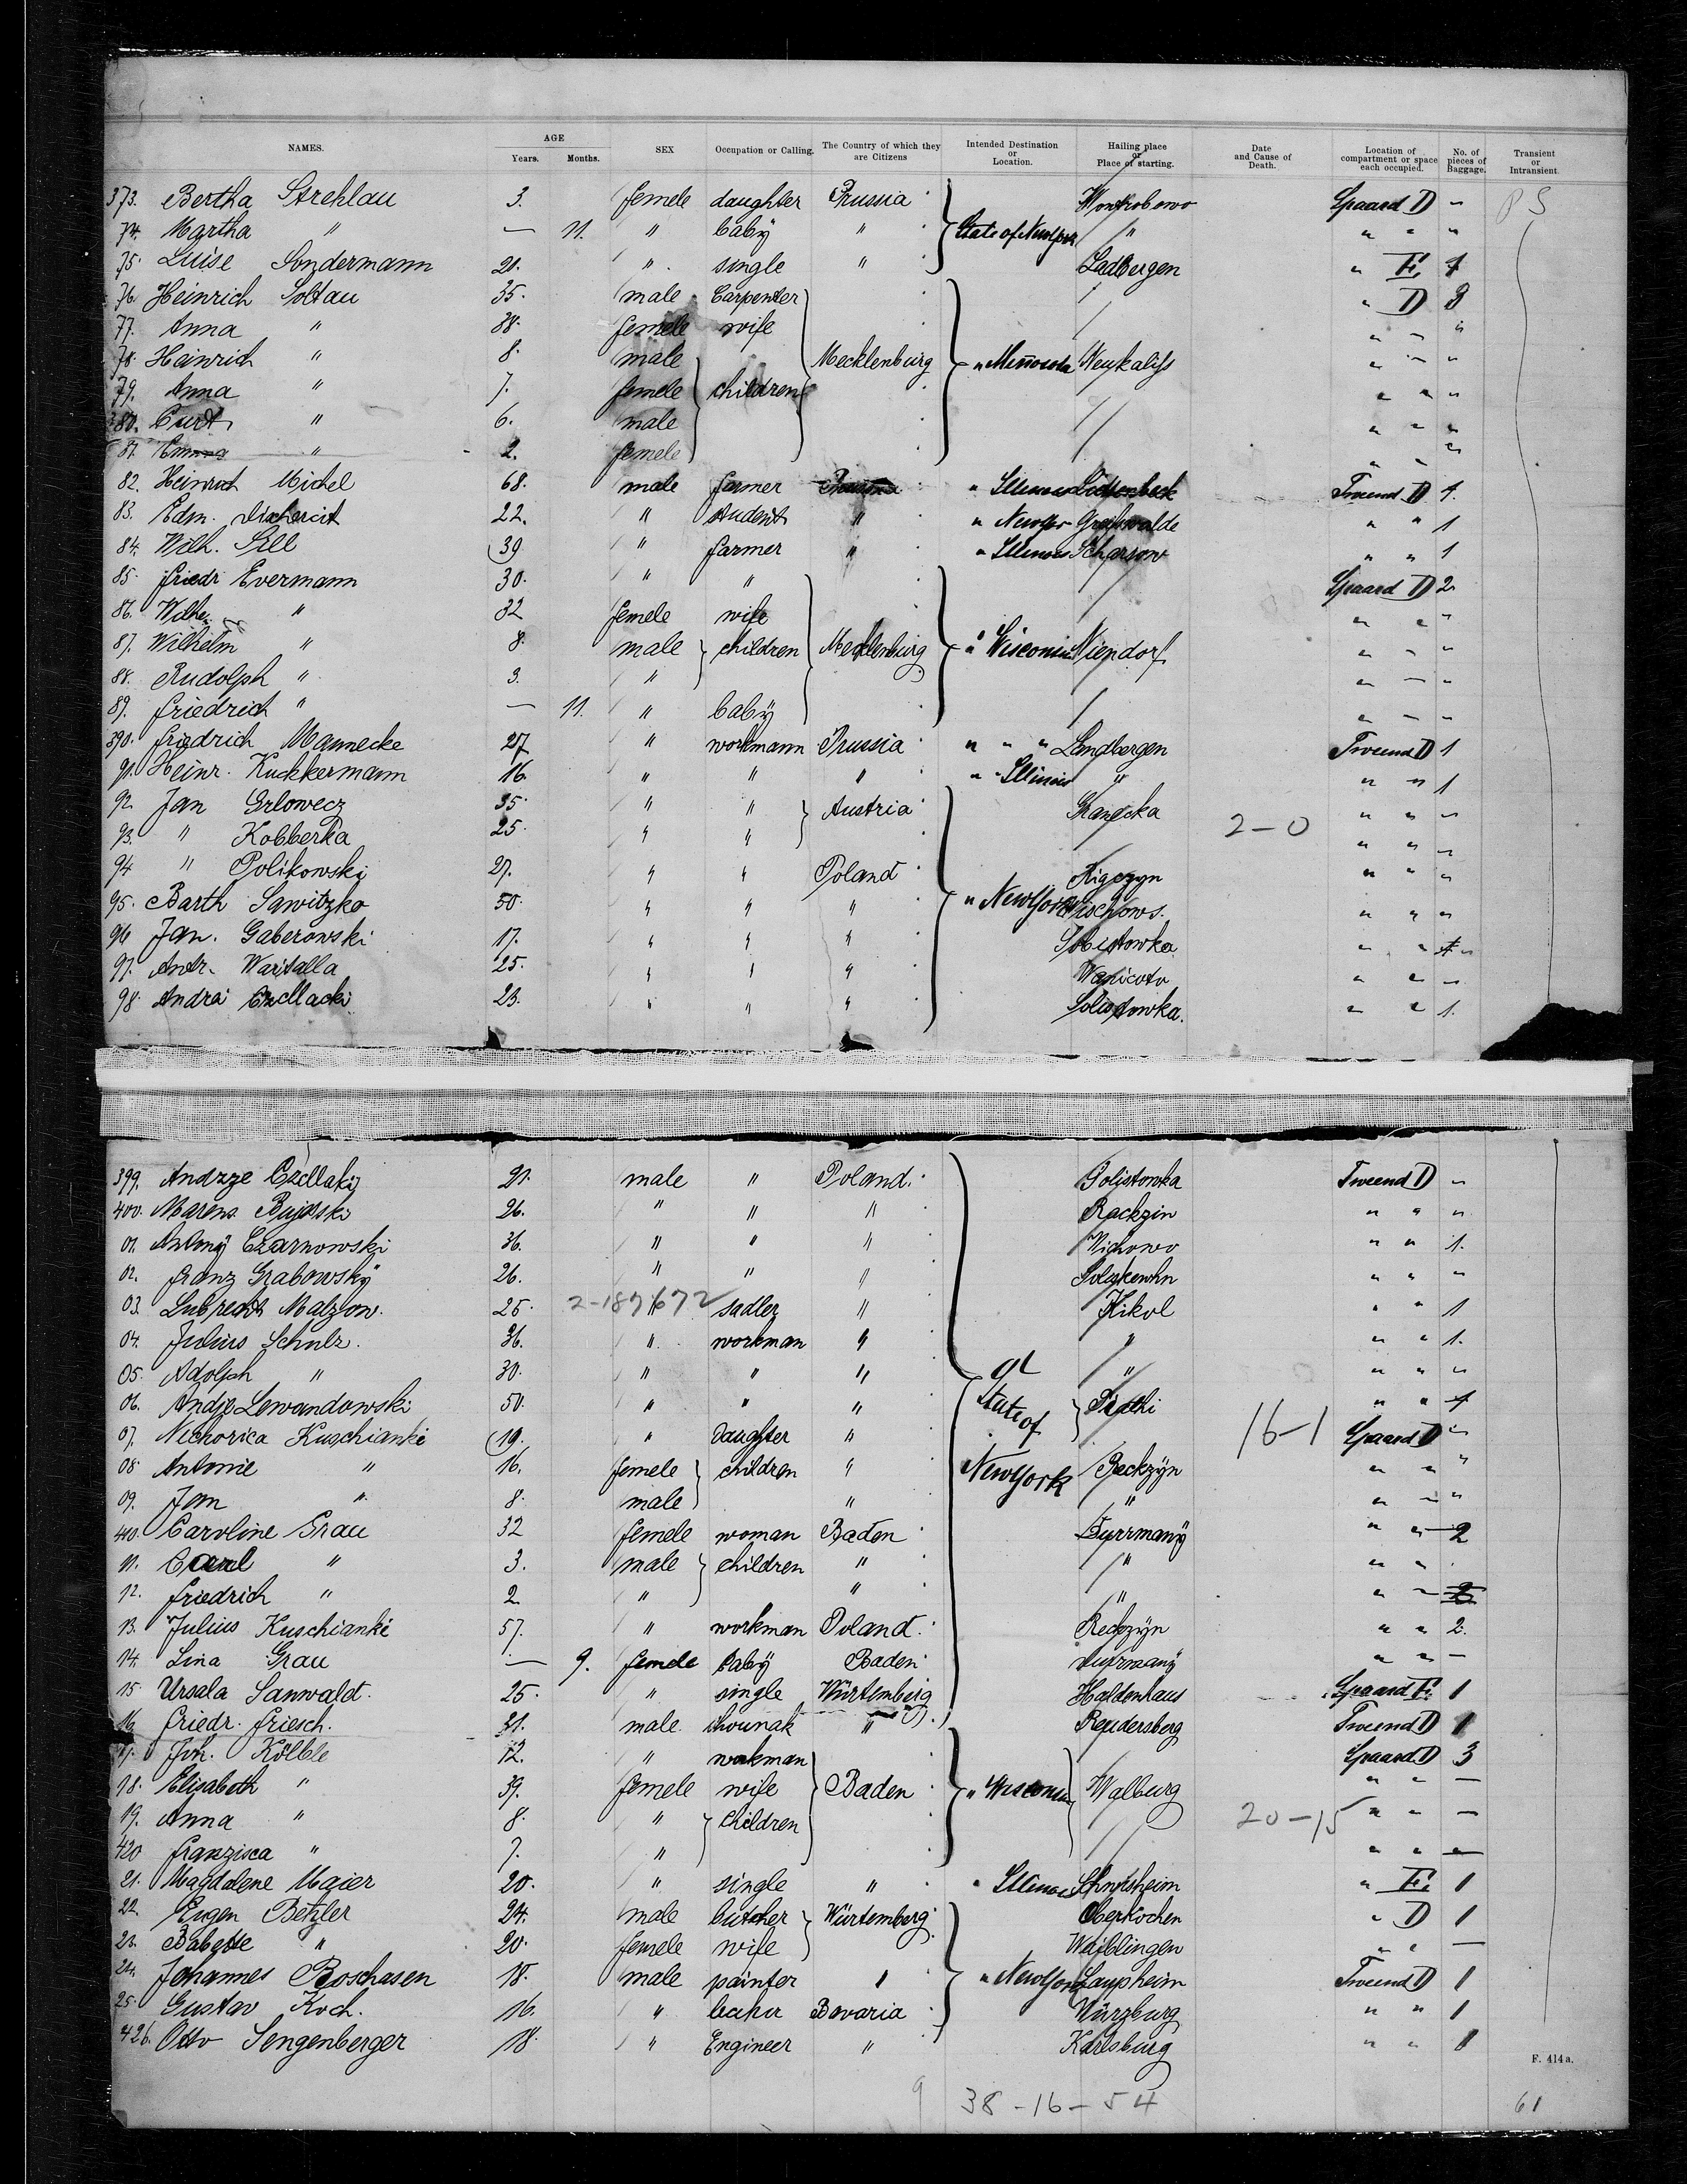 NAMES. AGE Years. Months. SEX Occupation or Calling. The Country of which they are Citizens Intended Destination or Location. Hailing place or Place of starting. Date and Cause of Death. Location of compartment or space each occupied. No. of pieces of Baggage. Transient or Intransient.
373. Bertha Strehlau 3. femele daughter Prussia Spaard D "
74. Martha " — 11. " baby " State of " " " "
75. Luise Sondermann 21. " single " Ladbergen " E. 1
76. Heinrich Soltau 35. male Carpenter " D 3
77. Anna " 38. femele wife " " "
78. Heinrich " 8. male Mecklenburg " Minnesoda Neukaliss " " "
79. Anna " 7. femele children " " "
380. Curt " 6. male " " "
81. Emma " 2. femele " " "
82. Heinrich Michel 68. male farmer " Illinois Tweend D 1.
83. Edm. 22. " student " " Greifswalde " " 1
84. Wilh. Sell 39 " farmer " " Illinois Scharsow " " 1
85. friedr Evermann 30. " " Spaard D 2.
86. " 32 femele wife " " "
87. Wilhelm " 8. male children Mecklenburg " Wisconsin Niendorf " " "
88. Rudolph " 3. " " " "
89. friedrich " — 11. " baby " " "
390. friedrich Mannecke 27 " workmann Prussia " " " Lendbergen Tweend D 1
91. Heinr. Kuckkermann 16. " " " " Illinois " " " 1
92. Jan Grlowecz 35. " " Austria " " "
93. " Kobberka 25. " " 2-0 " " "
94 " Polikowski 27. " " Poland " " "
95. Barth Sawitzko 50. " " " " New York " " "
96 Jan. Gaberowski 17. " " " " "
97. Andr. Waitalla 25. " " " " " "
98. Andra Czellacki 23. " " " " " 1.
399. Andzze Czellaki 21. male " Poland. Tweend D "
400. Marens Bujarski 26. " " " Rackzin " " "
01. Antony Czarnowski 36. " " " " " 1.
02. franz Grabowsky 26. " " " " " "
03. Malzow. 25. 2-187672 " sadler " Kikol " " 1
04. Julius Schulz. 36. " workman " " " " 1.
05. Adolph " 30. " " " " " " "
06. Andje Lewandowski 50. " " " State of " " 1
07. Nechorica Kuschianki 19. " Daughter " 16-1 Spaard D "
08. Antonie " 16. femele children " New York Reckzyn " " "
09. Jan " 8. male " " " " "
410. Caroline Grau 32 femele woman Baden " " 2
11. Carl " 3. male children " " " "
12. friedrich " 2 " " " " " 2
13. Julius Kuschianke 57. " workman Poland. Reckzyn " " 2.
14. Lina Grau — 9. femele baby Baden " " —
15. Ursala Sanwaldt. 25. " single Würtemberg Haldenhaus Spaard E. 1
16. friedr. friesch. 31. male " Reudersberg Tweend D 1
17. Joh. Kölble 12. " workman Spaard D 3
18. Elisabeth " 39. femele wife Baden " Wisconsin Walburg " " —
19. Anna " 8. " children 20-15 " " —
420 franzisca " 7. " " " —
21. Magdelene Maier 20. " single " " Illinois " E. 1
22. Eugen Betzler 24. male butcher Würtemberg Oberkochen " D 1
23. Babette " 20. femele wife Waiblingen " " —
24. Johannes Boschasen 18. male painter " " New York Laupheim Tweend D 1
25. Gustav Koch. 16. " Bavaria Würzburg " " 1
426. Otto Sengenberger 18. " Engineer " Karlsburg " " 1
F. 414 a.
9 38-16-54 61